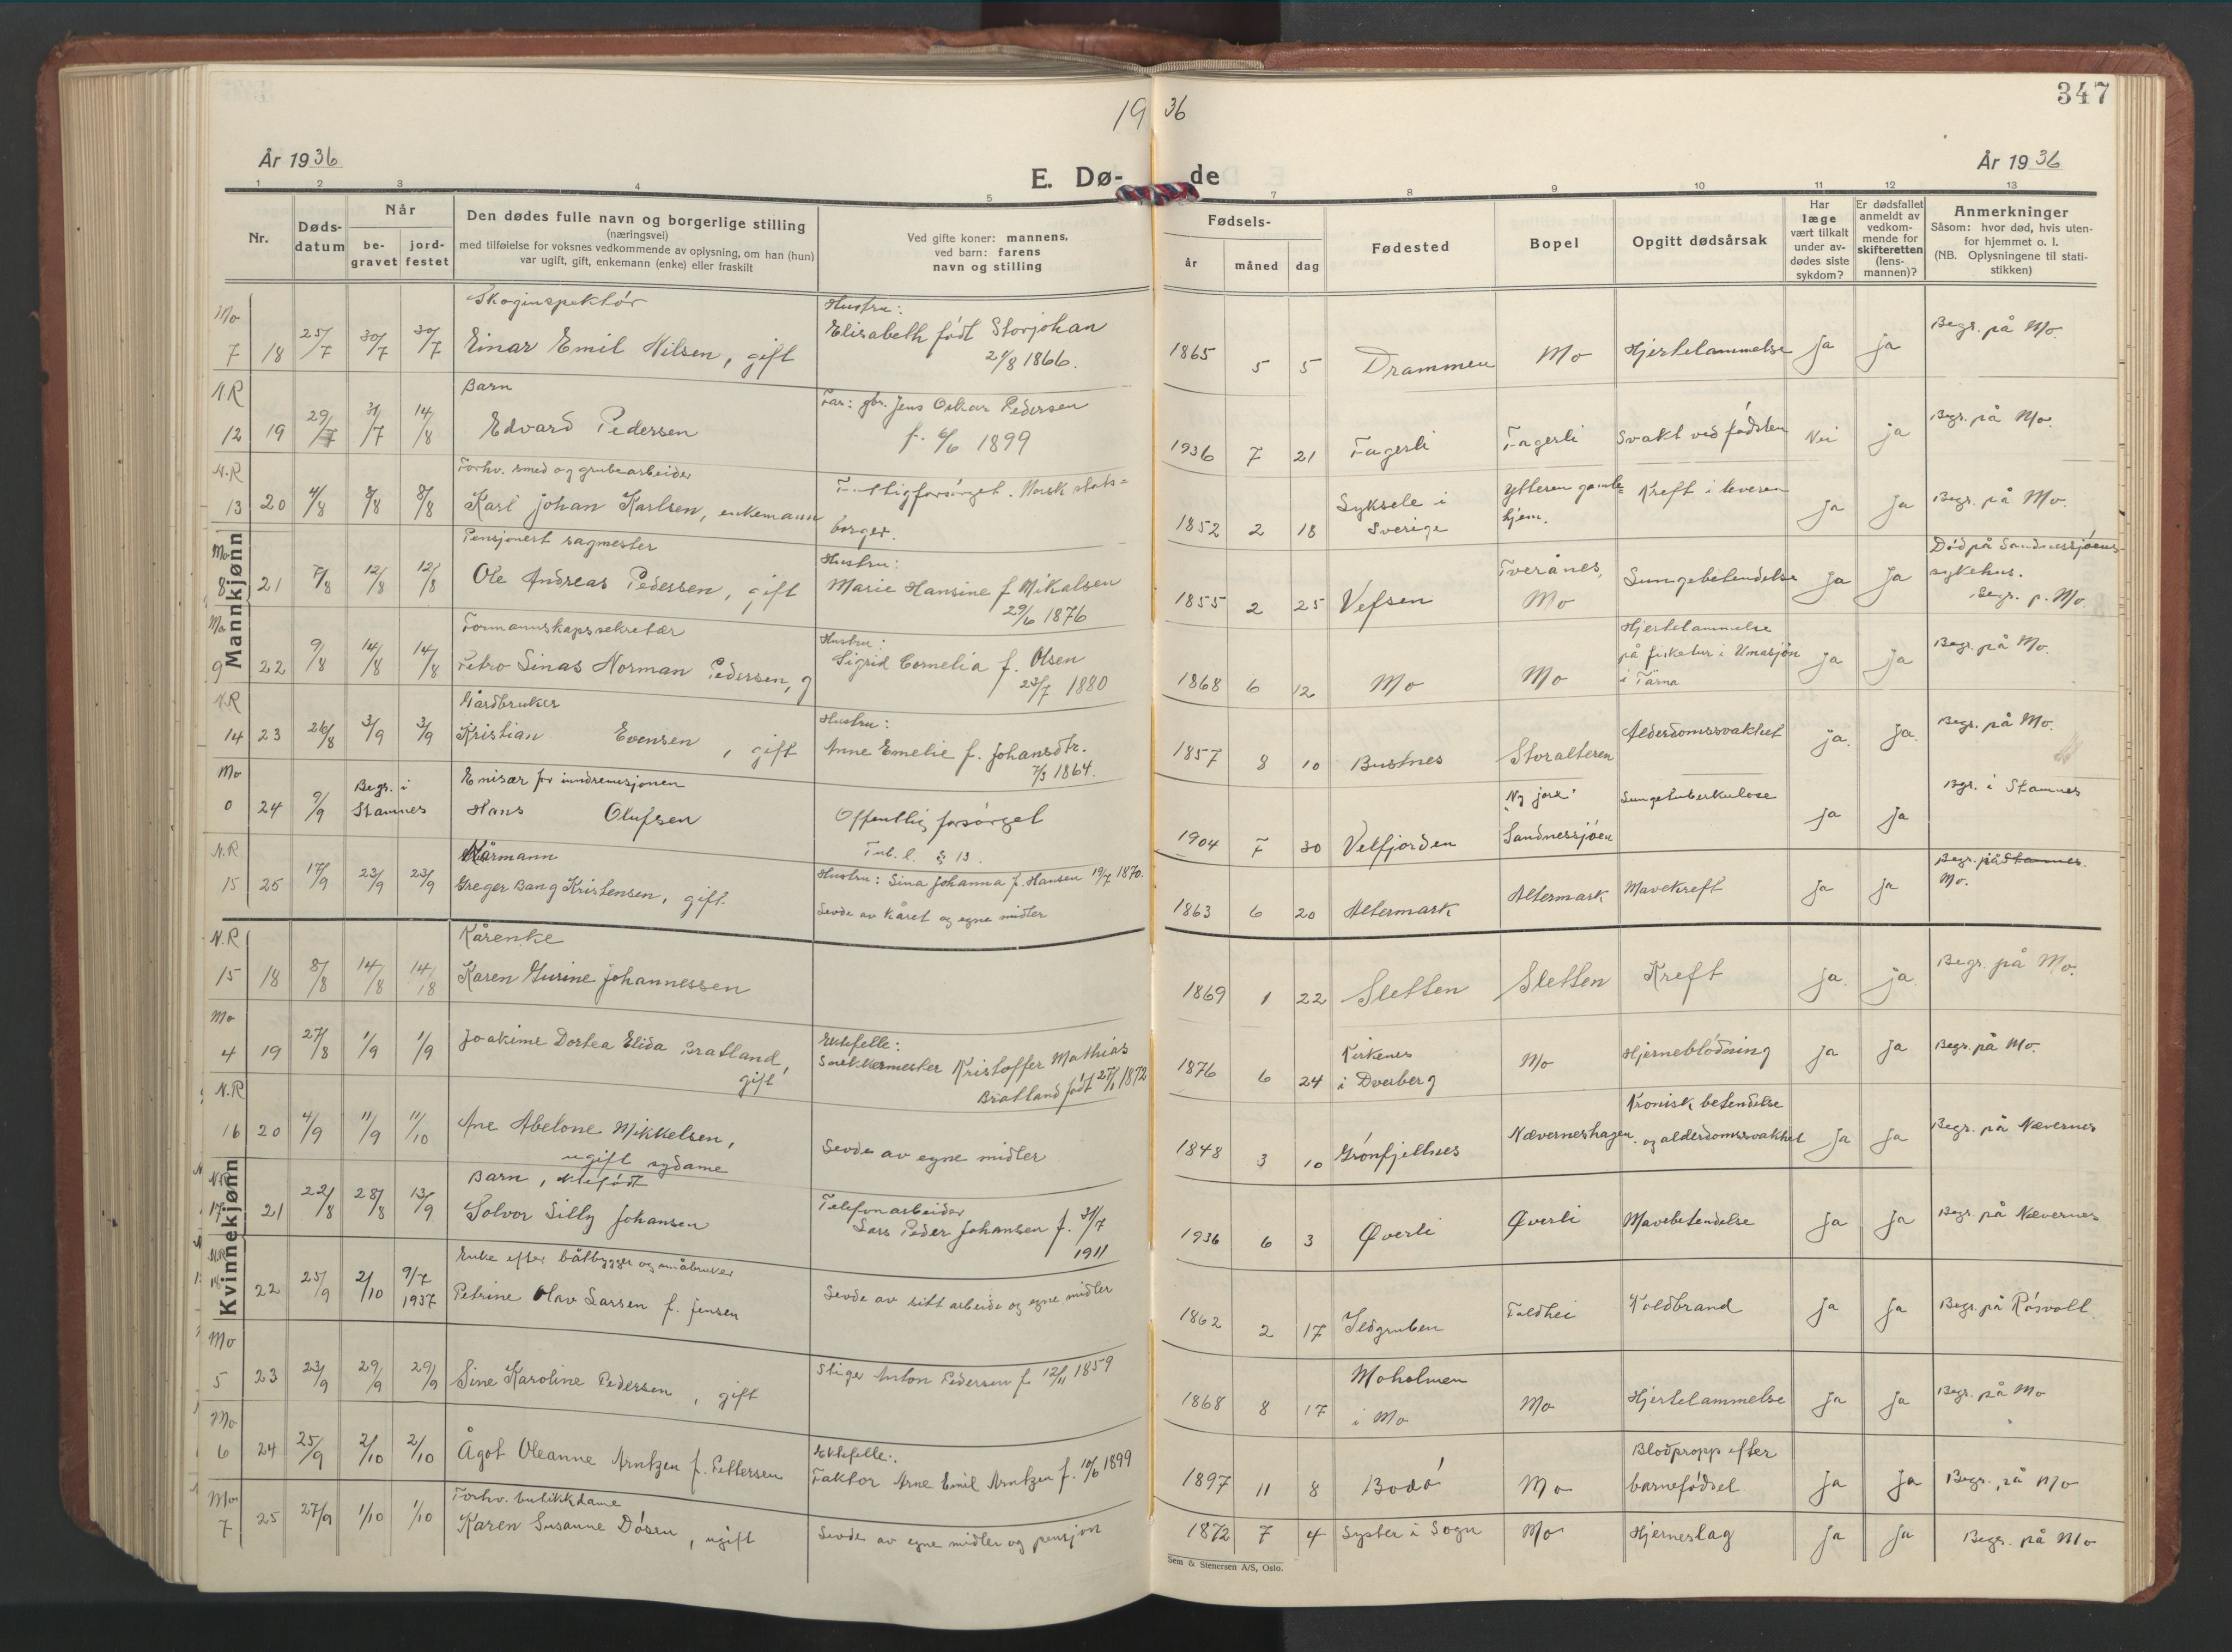 347
19 36
År 1936
E. Dø- de
År 1936
1 2 3 4 5 7 8 9 10 11 12 13
Nr.
Døds-
datum
Når
be-
gravet
jord-
festet
Den dødes fulle navn og borgerlige stilling
(næringsvei)
med tilføielse for voksnes vedkommende av oplysning, om han (hun)
var ugift, gift, enkemann (enke) eller fraskilt
Ved gifte koner: mannens,
ved barn: farens
navn og stilling
Fødsels-
år måned dag
Fødested
Bopel
Opgitt dødsårsak
Har
læge
vært tilkalt
under av-
dødes siste
sykdom?
Er dødsfallet
anmeldt av
vedkom-
mende for
skifteretten
(lens-
mannen)?
Anmerkninger
Såsom: hvor død, hvis uten-
for hjemmet o. l.
(NB. Oplysningene til stati-
stikken)
Mannkjønn
Mo Skoginspektør Hustru:
7 18 25/7 30/7 30/7 Einar Emil Nilsen, gift Elisabeth født Storjohan
2/8 1866.
1865 5 5 Drammen Mo Hjertelammelse ja ja Begr. på Mo.
N.R Barn Far: gbr. Jens Oskar Pedersen
12 19 29/7 31/7 14/8 Edvard Pedersen f. 6/6 1899
1936 7 21 Fagerli Fagerli Svakt ved fødslen Nei ja Begr. på Mo.
N.R Forhv. smed og grubearbeider
13 20 4/8 8/8 8/8 Karl Johan Karlsen, enkemann Norsk stats=
borger.
1852 2 18 Lyksele i Sverige Ytteren gamle= hjem. Kreft i leveren ja ja Begr. på Mo.
Mo Pensjonert sagmester Hustru:
8 21 7/8 12/8 12/8 Ole Andreas Pedersen, gift Marie Hansine f Mikalsen
29/6 1876
1855 2 25 Vefsen Tverånes, Mo Lungebetendelse ja ja Død på Sandnessjøens
sykehus.
Begr. p. Mo.
Mo Formannskapssekretær Hustru:
9 22 9/8 14/8 14/8 Petro Linas Norman Pedersen, g Sigrid Cornelia f. Olsen
23/7 1880
1868 6 12 Mo Mo Hjertelammelse
på fisketur i Umasjön
i Tärna ja ja Begr. på Mo.
N.R Gårdbruker Hustru:
14 23 26/8 3/9 3/9 Kristian Evensen, gift Anne Emelie f. Johansdtr.
7/3 1864.
1857 8 10 Bustnes Storalteren Alderdomssvakhet ja. ja. Begr. på Mo.
Mo Begr. i Emisær for inndremisjonen
0 24 9/9 Stamnes Hans Olufsen Offentlig forsørget
Tub. l. § 13.
1904 7 30 Velfjorden "Ny jord" Sandnessjøen Lungetuberkulose ja ja Begr. i Stamnes
N.R Kårmann Hustru: Lina Johanna f. Hansen 19/7 1870.
15 25 17/9 23/9 23/9 Greger Bang Kristensen, gift. Levde av kåret og egne midler
1863 6 20 Altermark Altermark Mavekreft ja ja Begr. på Stamnes.
Mo.
Kvinnekjønn
N.R Kårenke
15 18 8/8 14/8 14/8 Karen Gurine Johannessen
1869 1 22 Sletten Sletten Kreft ja. ja. Begr. på Mo.
Mo
4 19 27/8 1/9 1/9 Joakime Dortea Elida Bratland, gift Ektefelle:
Snekkermester Kristoffer Mathias
Bratland født 27/1 1872
1876 6 24 Kirkenes i Dverberg Mo Hjerneblødning ja ja Begr. på Mo.
N.R
16 20 4/9 11/9 11/10 Ane Abelone Mikkelsen,
ugift sydame Levde av egne midler
1848 3 10 Grønfjellnes Næverneshagen Kronisk betendelse
og alderdomssvakhet ja ja Begr. på Nævernes
N.R Barn, ektefødt
17 21 22/8 28/8 13/9 Solvor Lilly Johansen Telefonarbeider
Lars Peder Johansen f. 31/7
1911
1936 6 3 Øverli Øverli Mavebetendelse ja ja Begr. på Nævernes
N.R Enke efter båtbygger og småbruker
18 22 25/9 2/10 9/7 1937 Petrine Olav Larsen f. Jensen Levde av sitt arbeide og egne midler
1862 2 17 Ildgruben Foldhei Koldbrand ja ja Begr. på Røsvoll
Mo
5 23 23/9 29/9 29/9 Sine Karoline Pedersen, gift Stiger Anton Pedersen f. 12/11 1859
1868 8 17 Moholmen i Mo Mo Hjertelammelse ja ja Begr. på Mo
Mo
6 24 25/9 2/10 2/10 Ågot Oleanne Arntzen f. Pettersen Ektefelle:
Faktor Arne Emil Arntzen f. 10/6 1899
1897 11 8 Bodø Mo Blodpropp efter
barnefødsel ja ja Begr. på Mo
Mo Forhv. butikkdame
7 25 27/9 1/10 1/10 Karen Susanne Døsen, ugift Levde av egne midler og pensjon
1872 7 4 Lyster i Sogn Mo Hjerneslag ja ja Begr. på Mo
Sem & Stenersen A/S, Oslo.